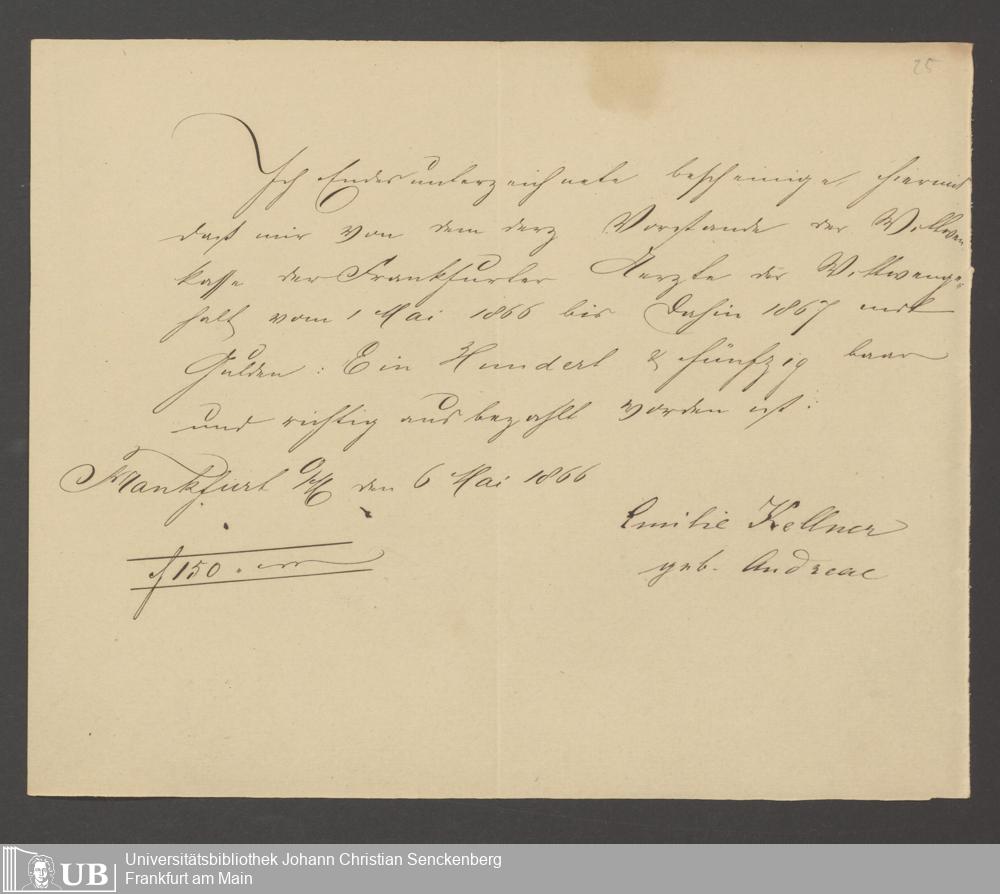 25
Ich Endesunterzeichnete bescheinige hiermit
daß mir von dem derz Vorstande der Wittwen
kasse der Frankfurter Aerzte der Wittwenge-
halt vom 1 Mai 1866 bis dahin 1867 mit
Gulden: Ein Hundert & fünfzig baar
und richtig ausbezahlt worden ist:
Frankfurt a/M den 6 Mai 1866
Emilie Kellner
f 150.
geb. Andreae
UB Universitätsbibliothek Johann Christian Senckenberg
Frankfurt am Main